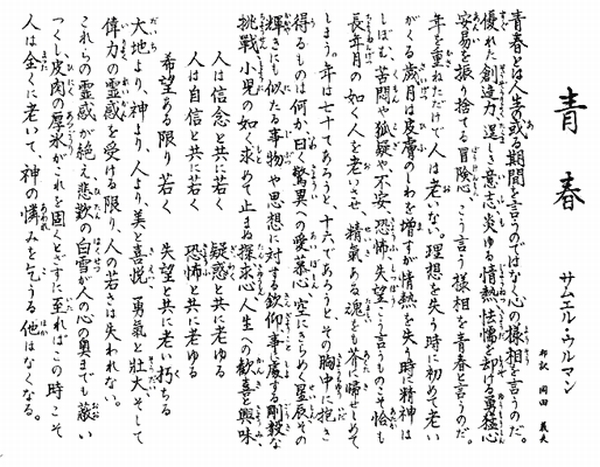 青春
サムエル・ウルマン
邦訳 岡田 義夫
青春とは人生の或る期間を言うのではなく心の様相を言うのだ。
優れた創造力、逞しき意志、炎ゆる情熱、怯懦を却ける勇猛心、
安易を振り捨てる冒険心、こう言う様相を青春と言うのだ。
年を重ねただけで人は老いない。理想を失う時に初めて老い
がくる。歳月は皮膚のしわを増すが情熱を失う時に精神は
しぼむ。苦悶や狐疑や不安、恐怖、失望、こう言うものこそ恰も
長年月の如く人を老いさせ、精氣ある魂をも芥に帰せしめて
しまう。年は七十であろうと、十六であろうと、その胸中に抱き
得るものは何か。曰く驚異への愛慕心、空にきらめく星辰、その
輝きにも似たる事物や思想に対する欽仰、事に處する剛毅な
挑戦、小児の如く求めて止まぬ探求心、人生への歓喜と興味。
人は信念と共に若く 疑惑と共に老ゆる
人は自信と共に若く 恐怖と共に老ゆる
希望ある限り若く 失望と共に老い朽ちる
大地より、神より、人より、美と喜悦、勇氣と壮大、そして
偉力の霊感を受ける限り、人の若さは失われない。
これらの霊感が絶え、悲歎の白雪が人の心の奥までも蔽い
つくし、皮肉の厚氷がこれを固くとざすに至ればこの時こそ
人は全くに老いて、神の憐みを乞うる他はなくなる。